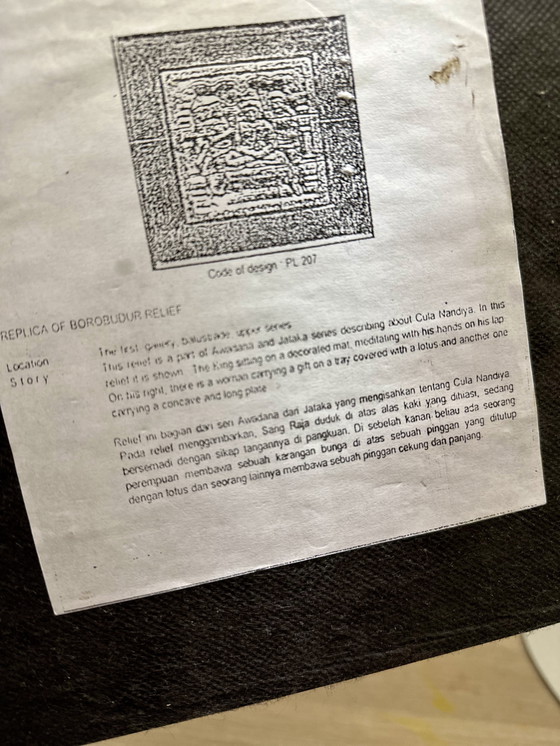 Code of design : PL 207
REPLICA OF BOROBUDUR RELIEF
Location The first gallery, balustrade, upper series
Story This relief is a part of Awadana and Jataka series describing about Cula Nandiya. In this
relief it is shown. The King sitting on a decorated mat, meditating with his hands on his lap
On his right, there is a woman carrying a gift on a tray covered with a lotus and another one
carrying a concave and long plate
Relief ini bagian dari seri Awadana dari Jataka yang mengisahkan tentang Cula Nandiya
Pada relief menggambarkan, Sang Raja duduk di atas alas kaki yang dihiasi, sedang
bersemadi dengan sikap tangannya di pangkuan. Di sebelah kanan beliau ada seorang
perempuan membawa sebuah karangan bunga di atas sebuah pinggan yang ditutup
dengan lotus dan seorang lainnya membawa sebuah pinggan cekung dan panjang.